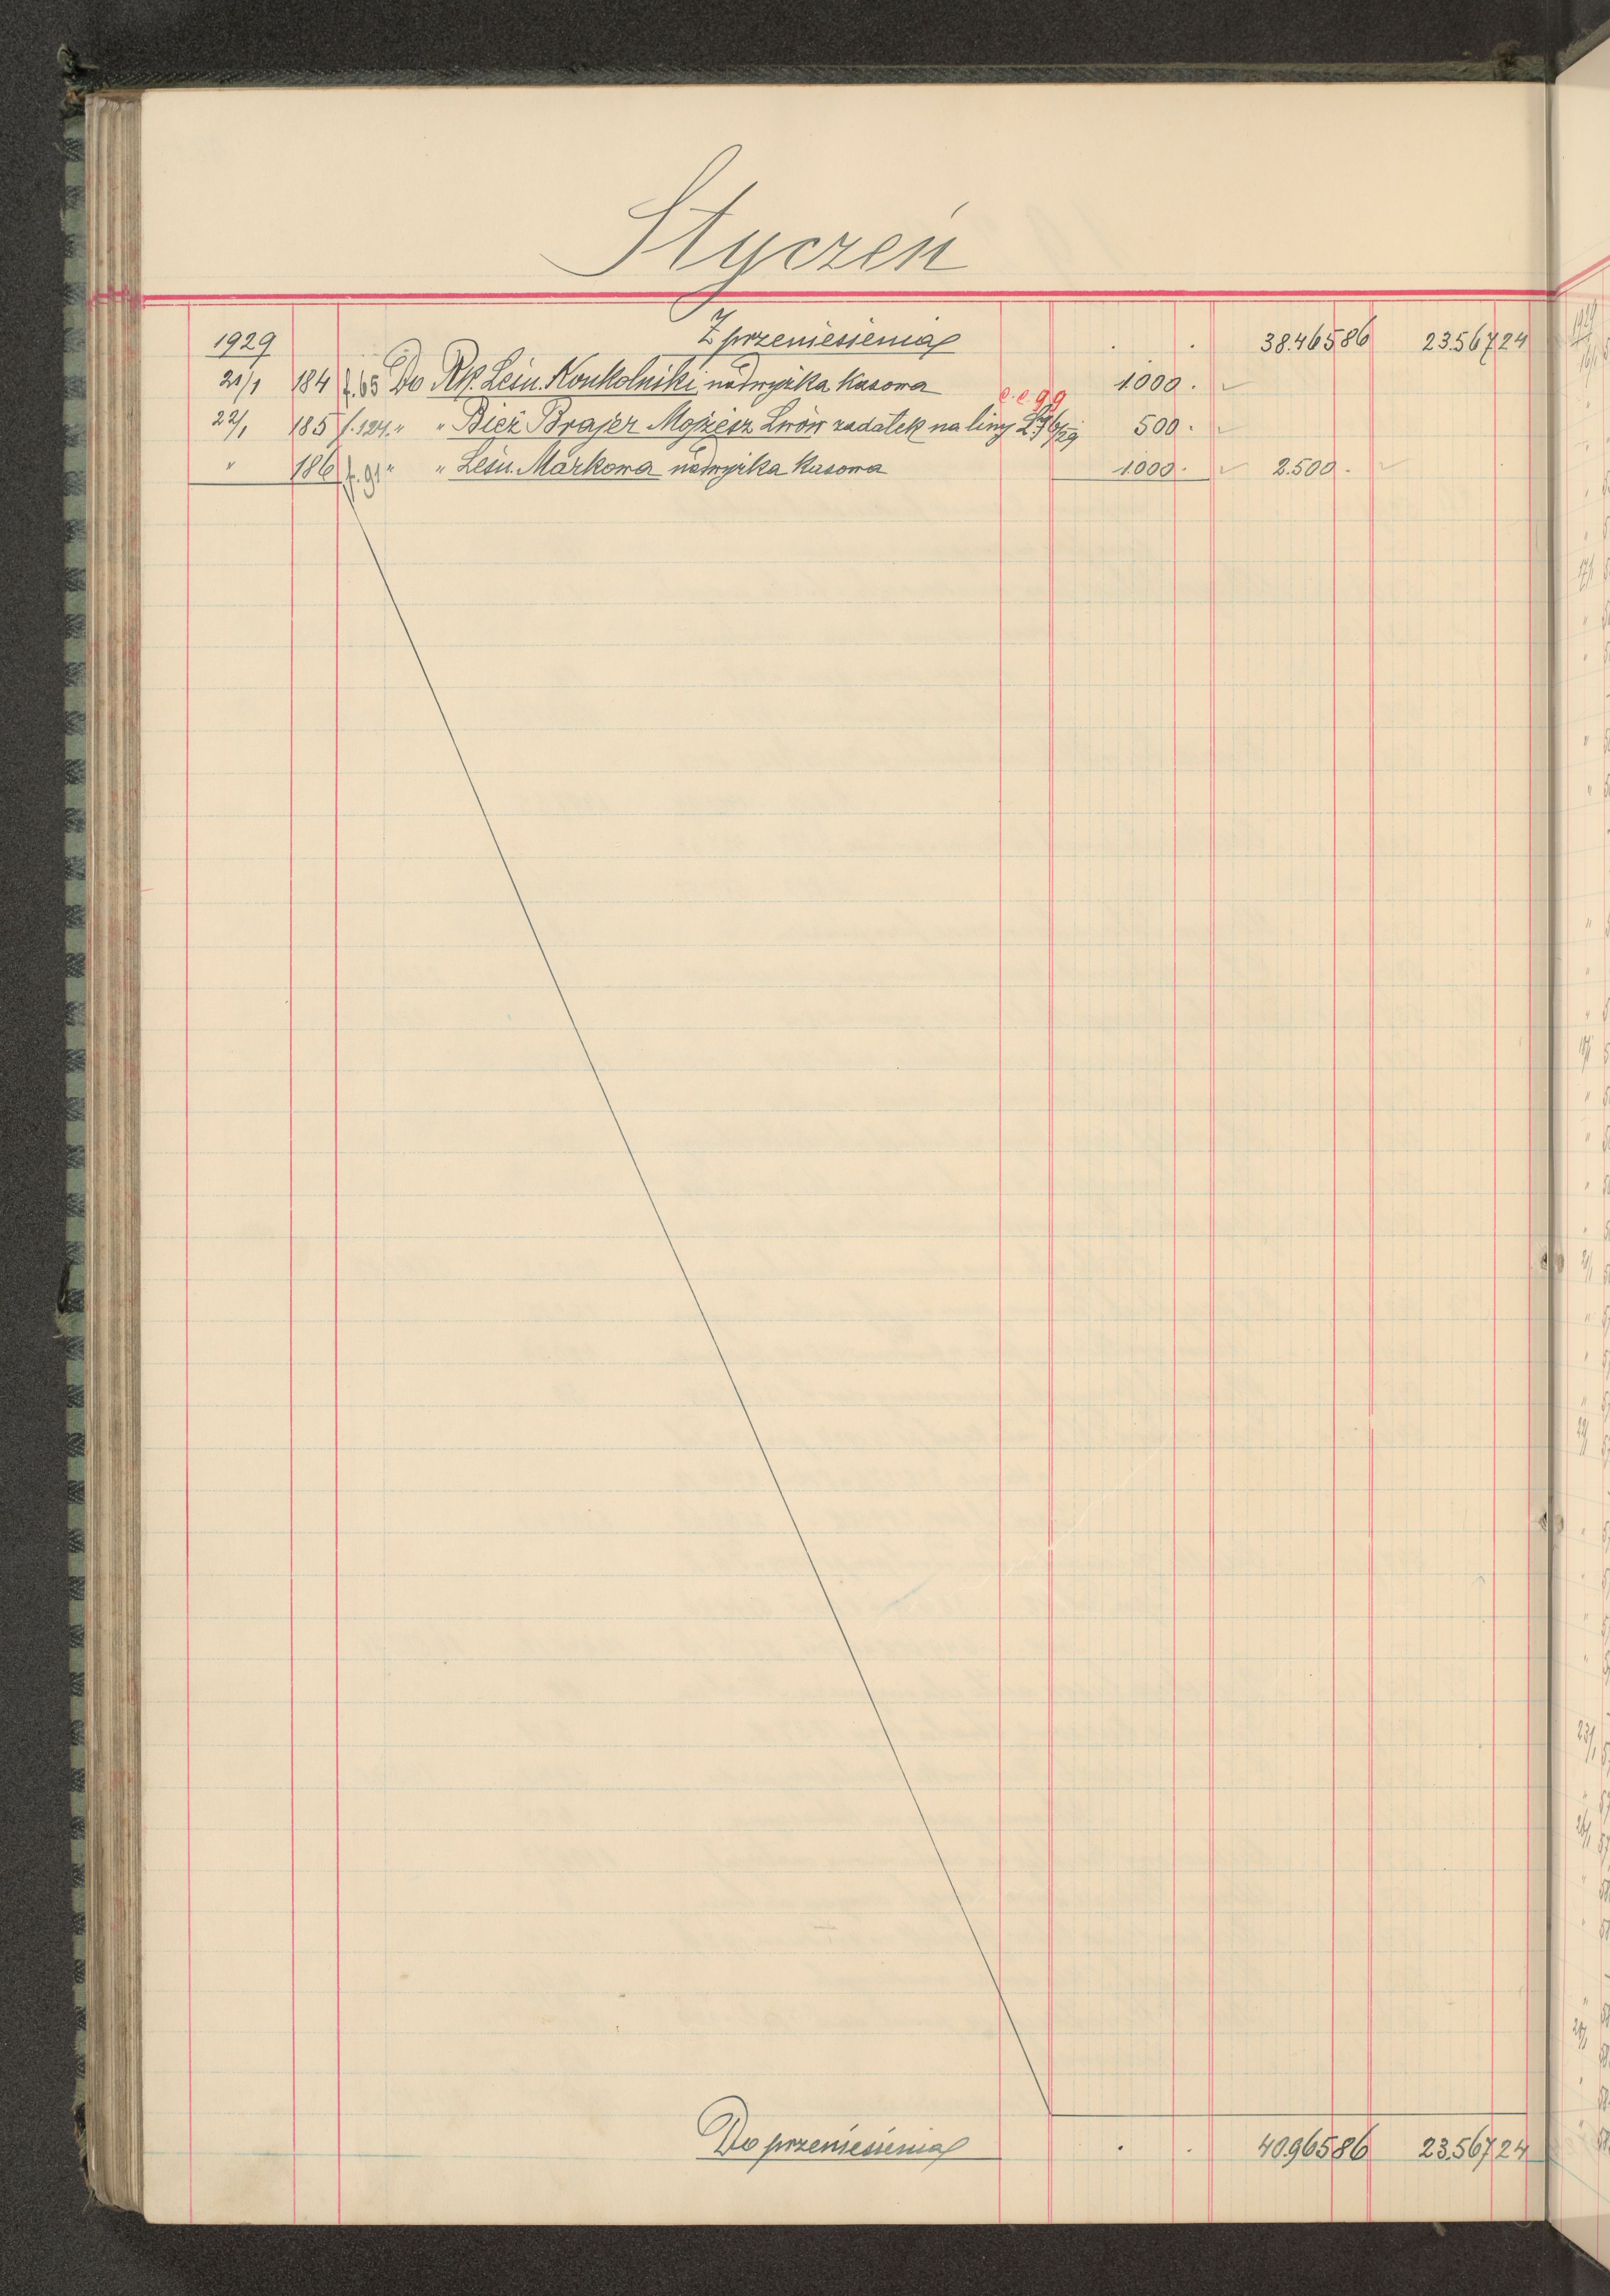 Styczeń
1929 Z przeniesienia . . 38.465 86 23.567 24
21/1 184 f. 65 Do Rk. Leśn. Konkolniki nadwyżka kasowa 1.000 .
22/1 185 f. 124. " " Bież Brajer Mojżesz Lwów zadatek na liny 500 .
" 186 f. 91 " " Leśn. Markowa nadwyżka kasowa 1.000 . 2.500 .
Do przeniesienia . . 40.965 86 23.567 24